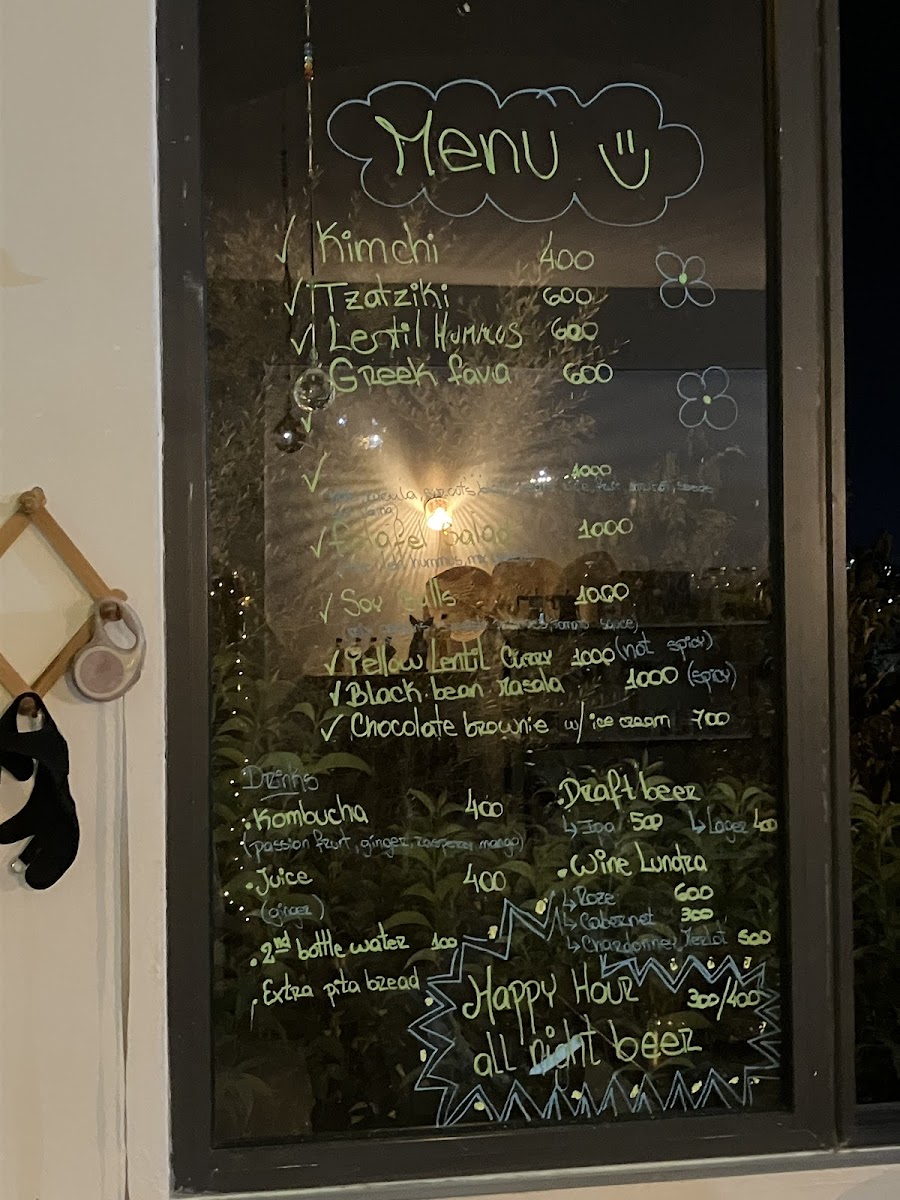 Menu
✓ Kimchi 400
✓ Tzatziki 600
✓ Lentil Hummus 600
✓ Greek fava 600
✓ 1000
✓ Salad 1000
✓ Soy Balls 1000
tomato sauce)
✓ Yellow Lentil Curry 1000 (not spicy)
✓ Black bean Masala 1000 (spicy)
✓ Chocolate brownie w/ ice cream 700
Drinks
• Kombucha 400
(passion fruit, ginger, mango)
• Juice 400
(ginger)
• 2nd bottle water 100
• Extra pita bread
• Draft beer
↳ Ipa 500 ↳ Lager 400
• Wine Lundra
↳ Roze 600
↳ Cabernet 300
↳ Merlot 500
Happy Hour 300/400
all night beer